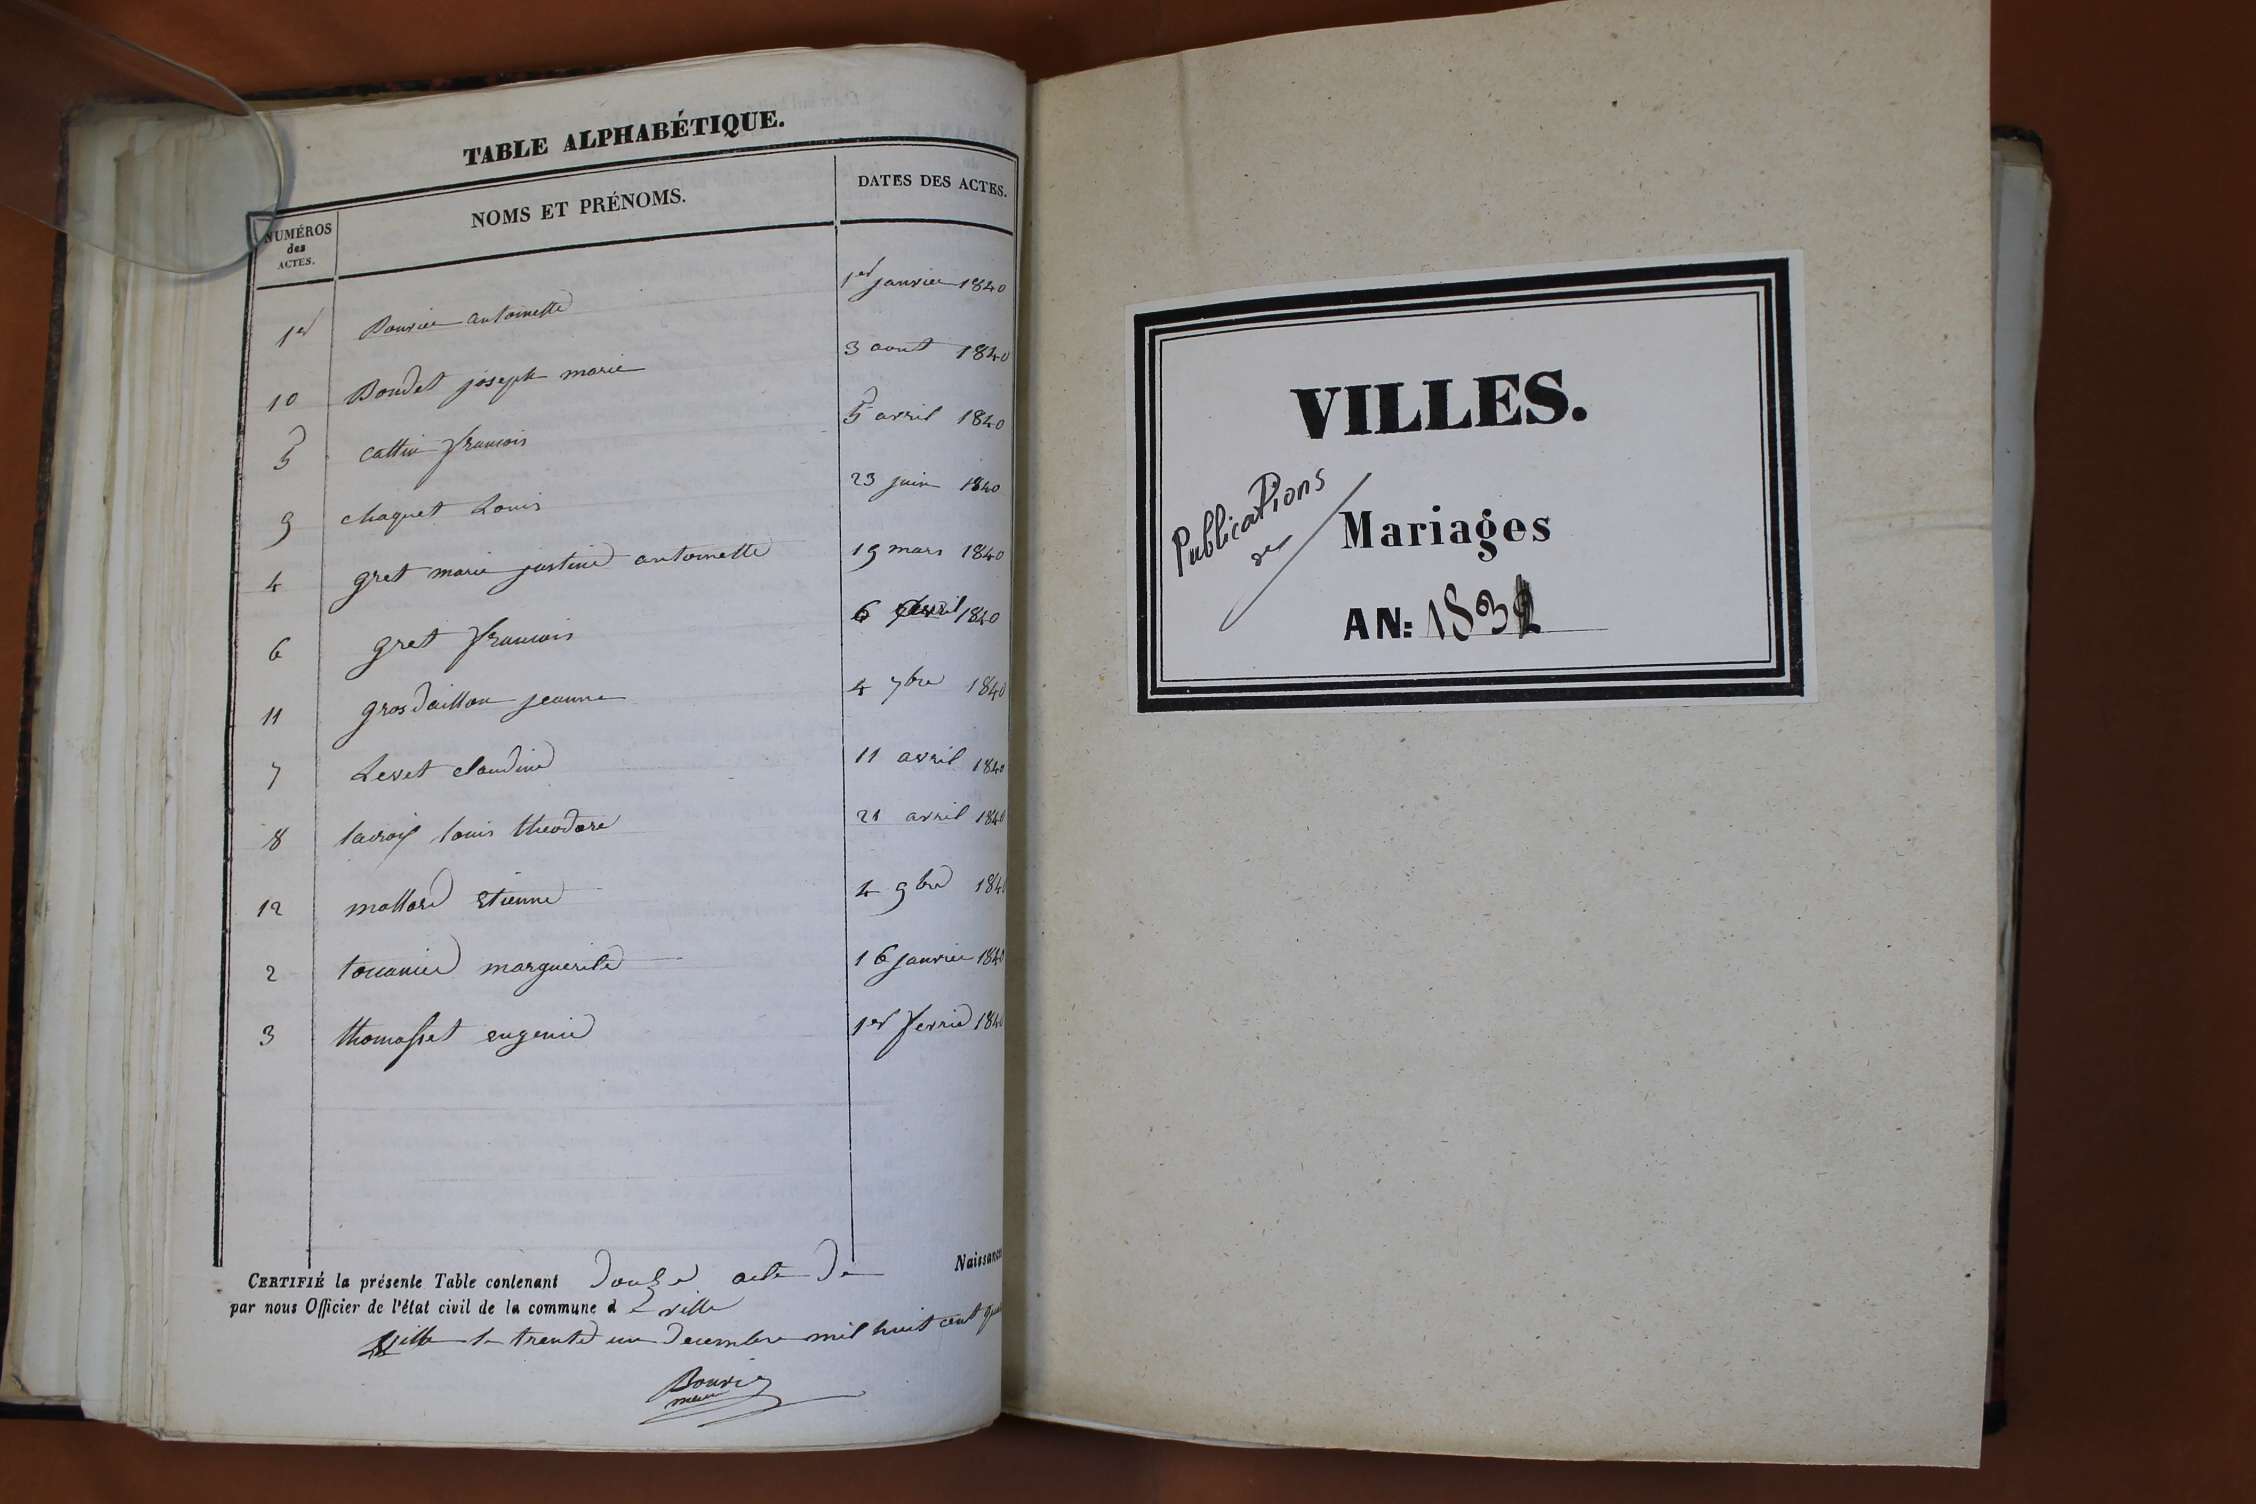 TABLE ALPHABÉTIQUE.
NUMÉROS des ACTES. NOMS ET PRÉNOMS. DATES DES ACTES.
1er Bouvier antoinette 1er janvier 1840
10 Boudet joseph marie 3 aout 1840
5 cattin francois 5 avril 1840
9 chaquet Louis 23 juin 1840
4 gret marie justine antoinette 19 mars 1840
6 gret francois 6 avril 1840
11 grosdaillon jeanne 4 7bre 1840
7 Levet claudine 11 avril 1840
8 lacroix louis theodore 21 avril 1840
12 mottard etienne 4 9bre 1840
2 marguerite 16 janvier 1840
3 thomasset eugenie 1er fevrie 1840
CERTIFIÉ la présente Table contenant douze acte de Naissance
par nous Officier de l'état civil de la commune d e ville
ville le trente un decembre mil huit cent
Bouvier
maire
VILLES.
Publications
de
Mariages
AN: 1832